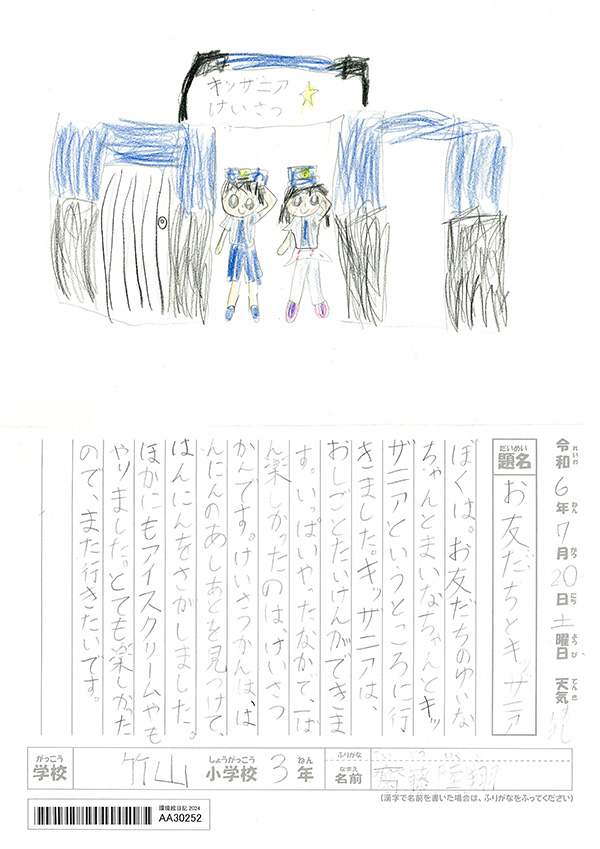 キッザニア
けいさつ
令和6年7月20日土曜日 天気 はれ
れいわ ねん がつ にち ようび てんき
だいめい
題名
お友だちとキッザニア
ぼくは。お友だちのゆいな
ちゃんとまいなちゃんとキッ
ザニアというところに行
きました。キッザニアは、
おしごとたいけんができま
す。いっぱいやったなかで、一ば
ん楽しかったのはけいさつ
かんです。けいさつかんは、は
んにんのあしあとを見つけて、
はんにんをさがしました。
ほかにもアイスクリームやも
やりました。とても楽しかった
ので、また行きたいです。
がっこう しょうがっこう ねん
学校 竹山 小学校 3年
ふりがな さいとう
なまえ
名前 齋藤
(漢字で名前を書いた場合は、ふりがなをふってください)
環境絵日記2024
AA30252